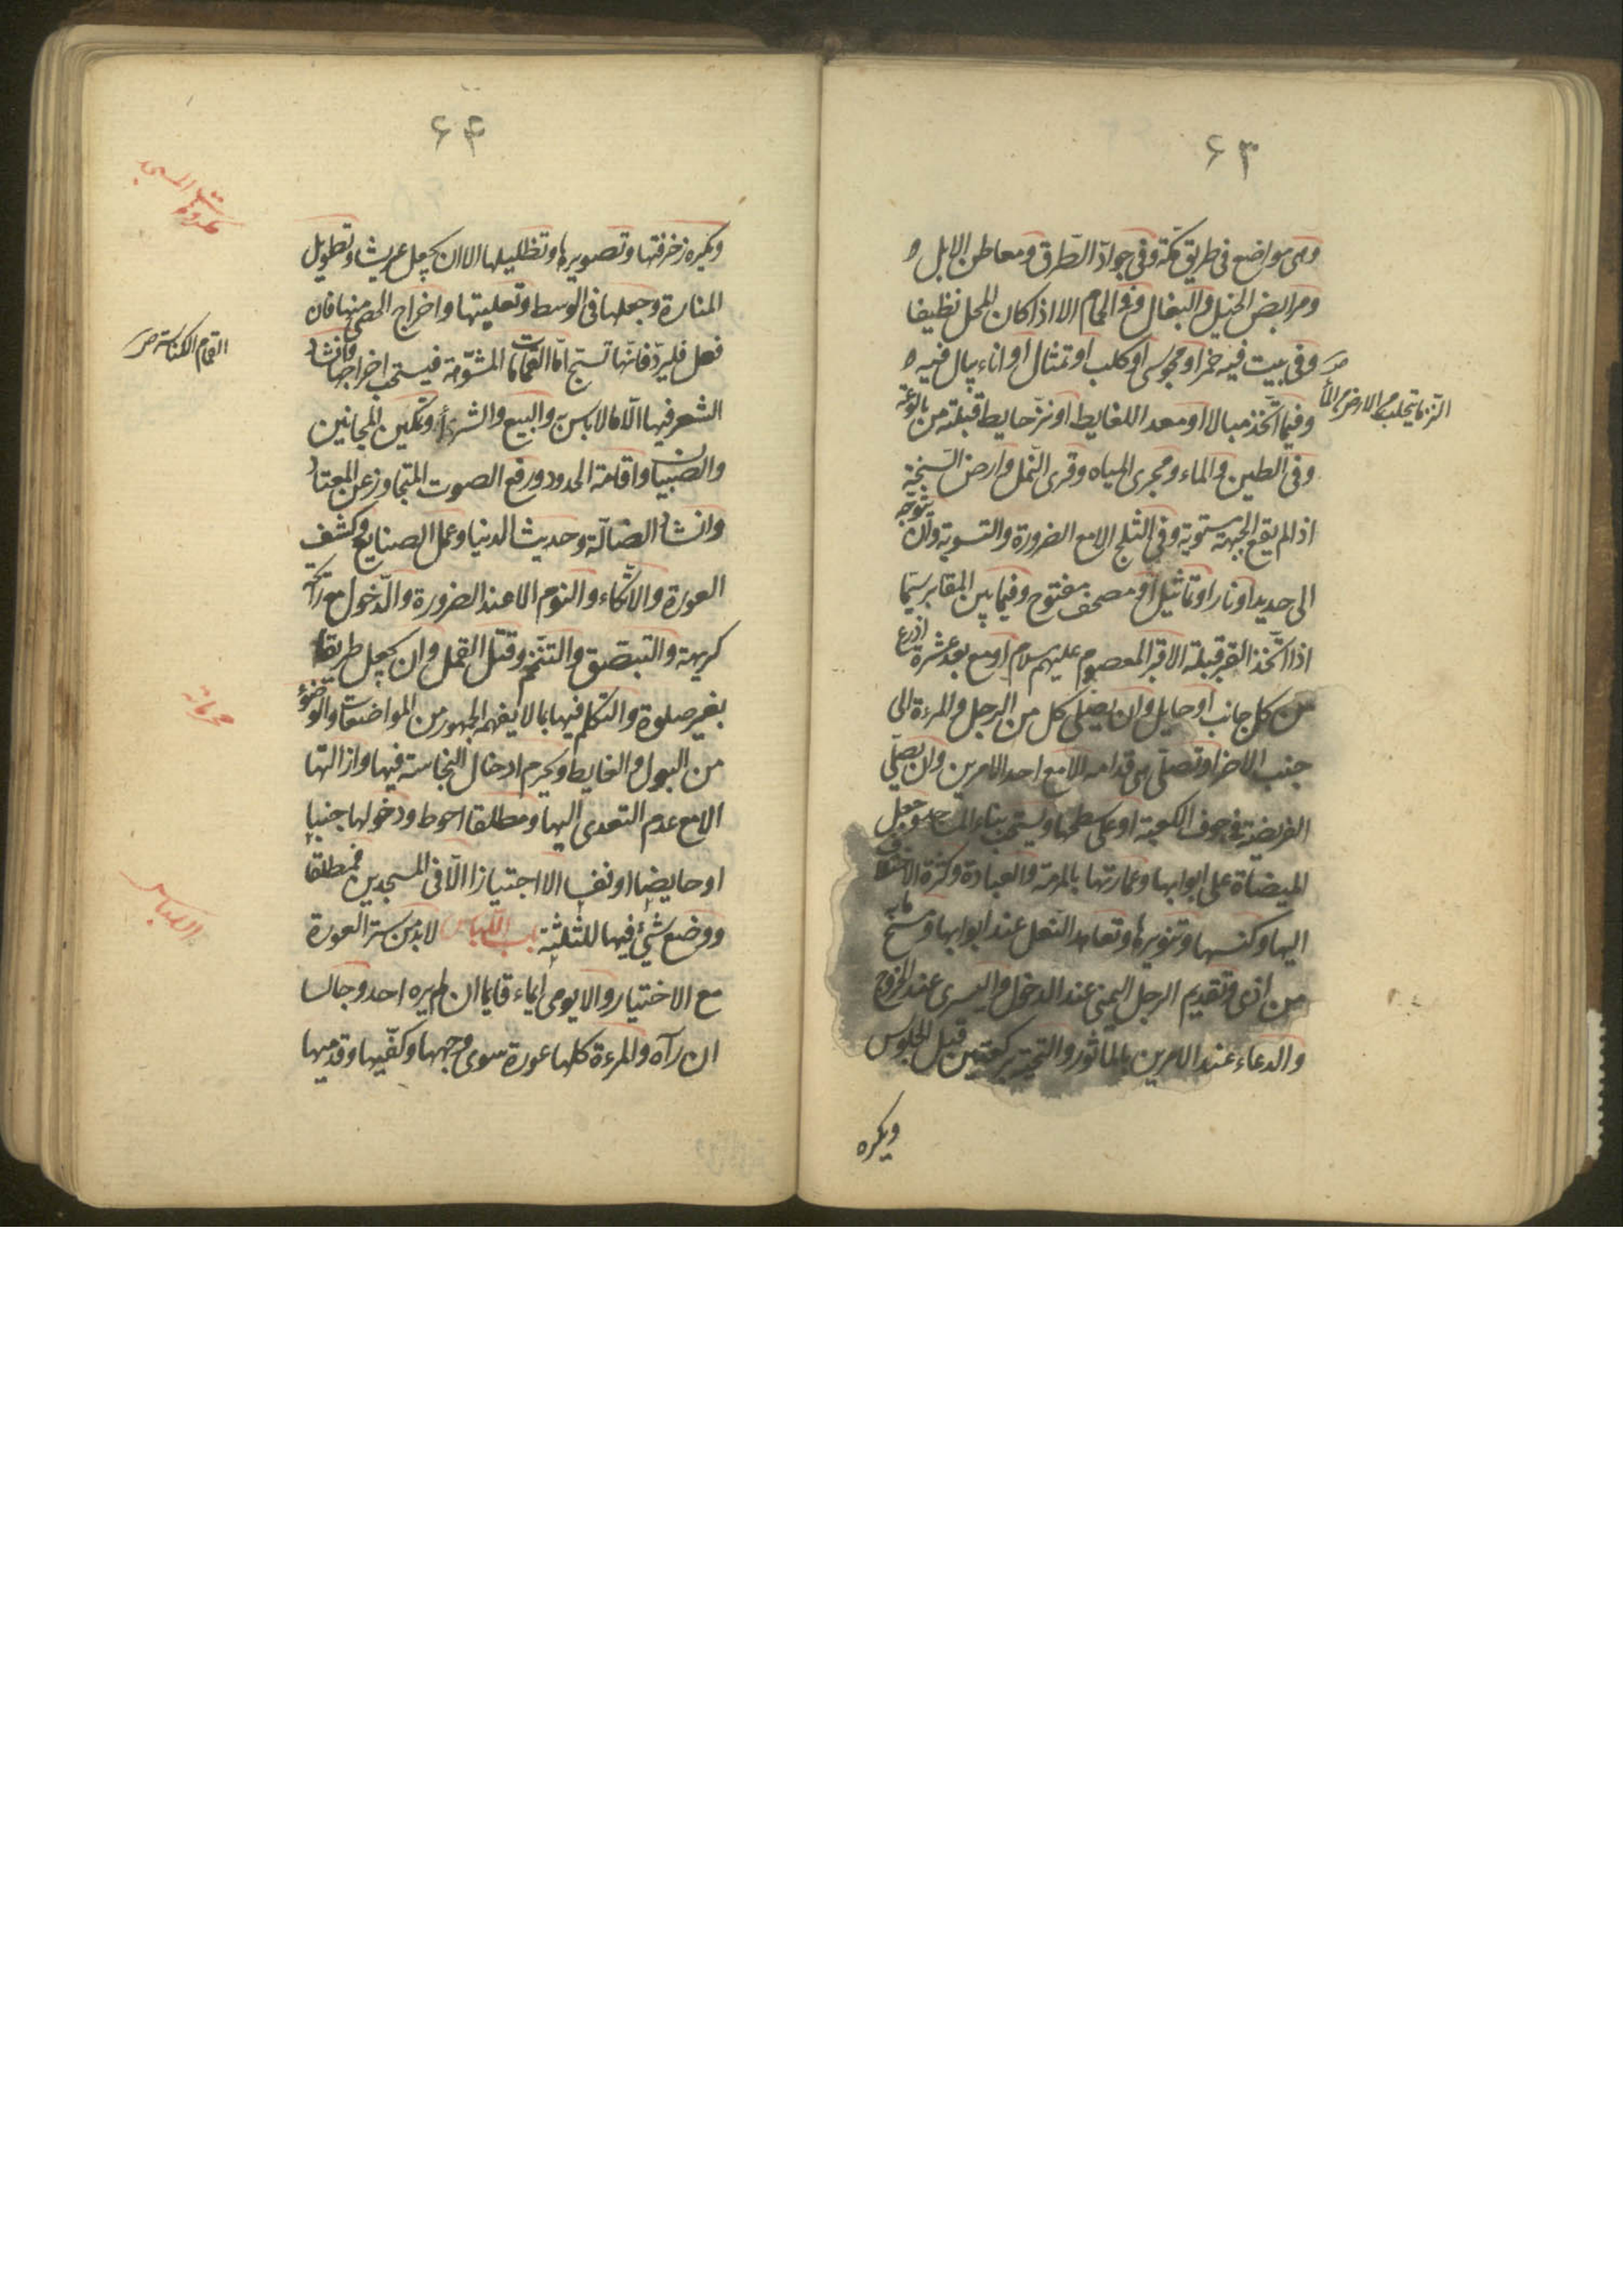 ۶۳
وهى مواضع فى طريق مكّة وفى جوادّ الطّرق ومعاطن الابل و
ومرابض الخيل والبغال وفى الحمام الا اذا كان المحل نظيفا
وفى بيت فيه خمر او مجوسى او كلب او تمثال او اناء يبال فيه و
وفيما اتّخذ مبالا او معدا للغايط او نزّ حايط قبلته من بالوعة
النزّ ما يتحلب من الارض من الماء
وفى الطين والماء ومجرى المياه وقرى النّمل وارض السّبخة
اذا لم يقع الجبهة مستوية وفى الثلج الا مع الضرورة والتسوية وان يتوجّه
الى حديد او نار او تماثيل او مصحف مفتوح وفيما بين المقابر سيّما
اذا اتّخذ القبر قبلة الا قبر المعصوم عليهم سلام او مع بعد عشرة اذرع
من كل جانب او حايل وان يصلّى كل من الرجل والمرءة الى
جنب الاخر او تصلّى هى قدامه الا مع احد الامرين وان يصلّى
الفريضة فى جوف الكعبة او على سطحها ويستحب بناء المساجد وجعل
الميضاة على ابوابها وعمارتها بالمرمة والعبادة وكثرة الاختلاف
اليها وكنسها وتنويرها وتعاهد النّعل عند ابوابها ومسح ما به
من اذى وتقديم الرجل اليمنى عند الدخول واليسرى عند الخروج
والدعاء عند الامرين بالماثور والتحية بركعتين قبل الجلوس
ويكره
۶۴
مكروهات المسجد
ويكره زخرفتها وتصويرها وتظليلها الا ان يجعل عريشا وتطويل
المنارة وجعلها فى الوسط وتعليتها واخراج الحصى منها فان
فعل فليردّ فانّها تسبّح امّا القمامات المشوّمة فيستحب اخراجها وانشاد
القمام الكناسة
الشعر فيها الّا ما لا باس به والبيع والشراء وتمكين المجانين
والصبيان واقامة الحدود ورفع الصوت المتجاوز عن المعتاد
وانشاد الضّالّة وحديث الدنيا وعمل الصنايع وكشف
العورة والاتّكاء والنوم الا عند الضرورة والدّخول مع رائحة
كريهة والتبصّق والتنخّم وقتل القمل وان يجعل طريقا
بغير صلوة والتكلم فيها بما لا يفهمه الجمهور من المواضعات والوضوء
محرماته
من البول والغايط ويحرم ادخال النجاسة فيها وازالتها
الا مع عدم التعدى اليها ومطلقا احوط ودخولها جنبا
او حايضا او نفساء الا اجتيازا الّا فى المسجدين فمطلقا
ووضع شئ فيها للثلثة باب اللّباس لا بدّ من ستر العورة
اللباس
مع الاختيار والا يومى ايماء قايما ان لم يره احد وجالسا
ان رآه والمرءة كلها عورة سوى وجهها وكفّيها وقدميها